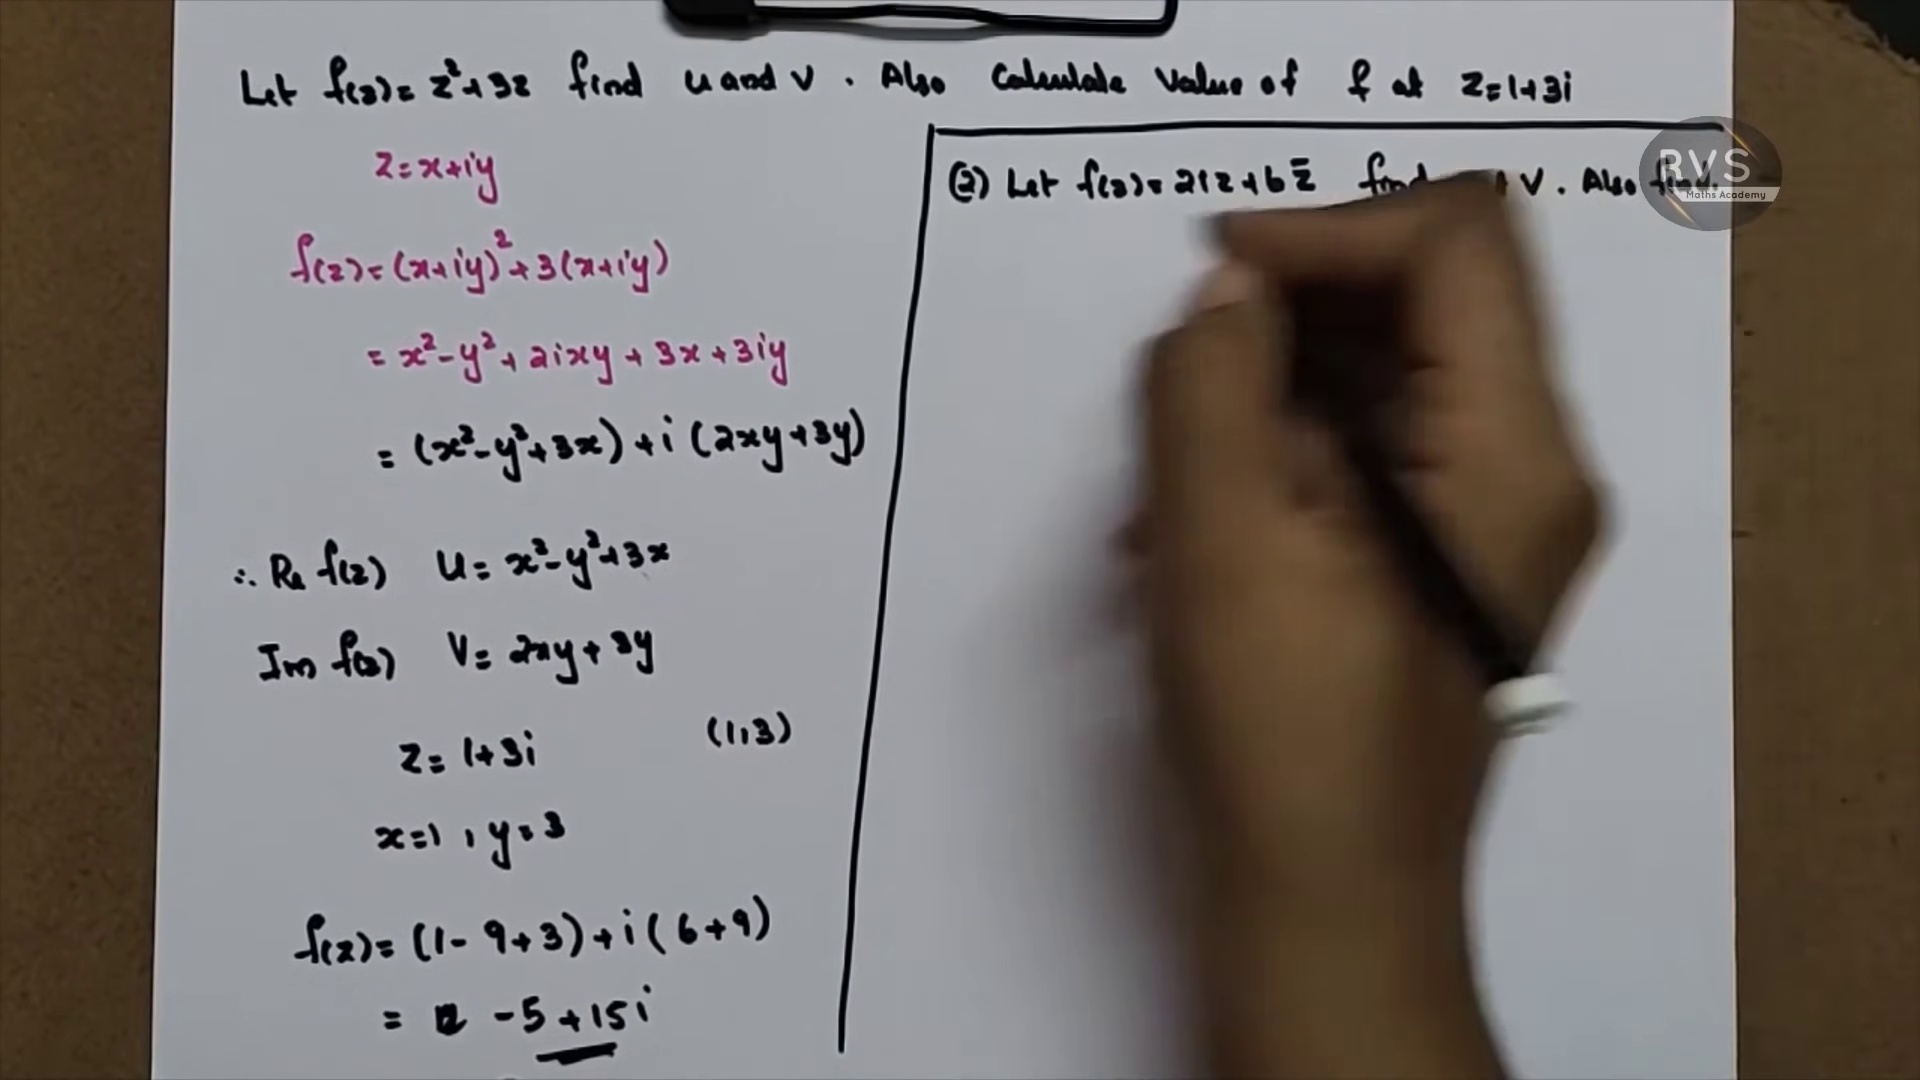 Let f(z) = z² + 3z find u and v. Also Calculate value of f at z = 1+3i
z = x+iy
f(z) = (x+iy)² + 3(x+iy)
= x² - y² + 2ixy + 3x + 3iy
= (x² - y² + 3x) + i (2xy + 3y)
∴ Re f(z) u = x² - y² + 3x
Im f(z) v = 2xy + 3y
z = 1+3i (1,3)
x=1, y=3
f(z) = (1 - 9 + 3) + i (6+9)
= -5 + 15i
(2) Let f(z) = 2iz + 6z̄ find v. Also find
RVS
Maths Academy